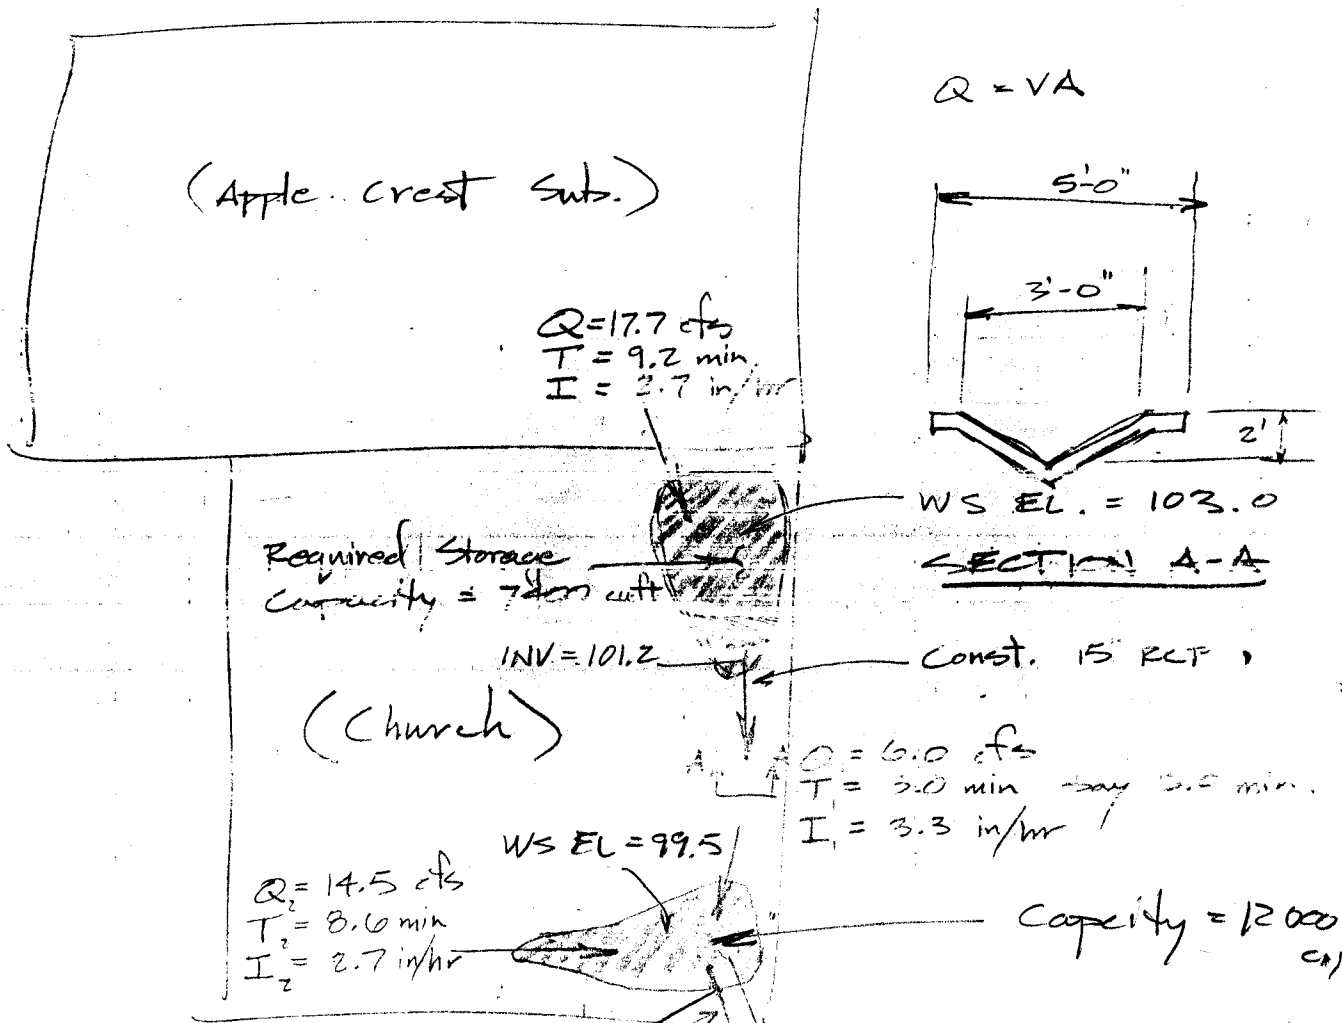 Q = VA
5'-0"
(Apple Crest Sub.)
3'-0"
Q = 17.7 cfs
T = 9.2 min.
I = 2.7 in/hr
2'
WS EL. = 103.0
SECTION A-A
Required Storage
Capacity = cuft
INV = 101.2
Const. 15"
(Church)
A A
Q₁ = 6.0 cfs
T₁ = min say min.
I₁ = 3.3 in/hr
WS EL = 99.5
Q₂ = 14.5 cfs
T₂ = 8.6 min
I₂ = 2.7 in/hr
Capacity = 12000